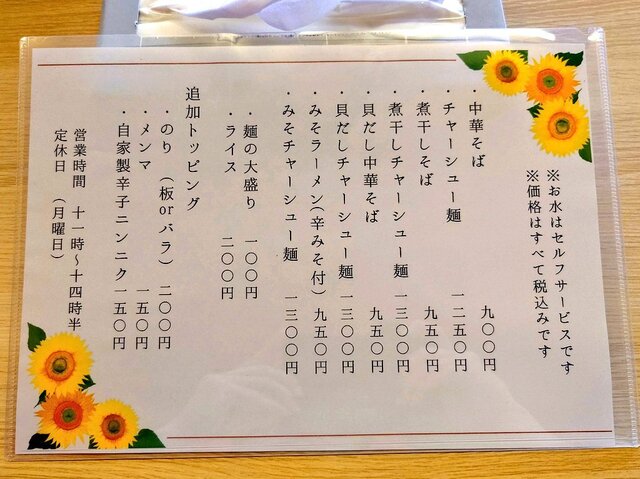 ※お水はセルフサービスです
※価格はすべて税込みです
・中華そば 九〇〇円
・チャーシュー麺 一二五〇円
・煮干しそば 九五〇円
・煮干しチャーシュー麺 一三〇〇円
・貝だし中華そば 九五〇円
・貝だしチャーシュー麺 一三〇〇円
・みそラーメン(辛みそ付) 九五〇円
・みそチャーシュー麺 一三〇〇円
・麺の大盛り 一〇〇円
・ライス 二〇〇円
追加トッピング
・のり (板orバラ) 二〇〇円
・メンマ 一五〇円
・自家製辛子ニンニク 一五〇円
営業時間 十一時～十四時半
定休日 (月曜日)